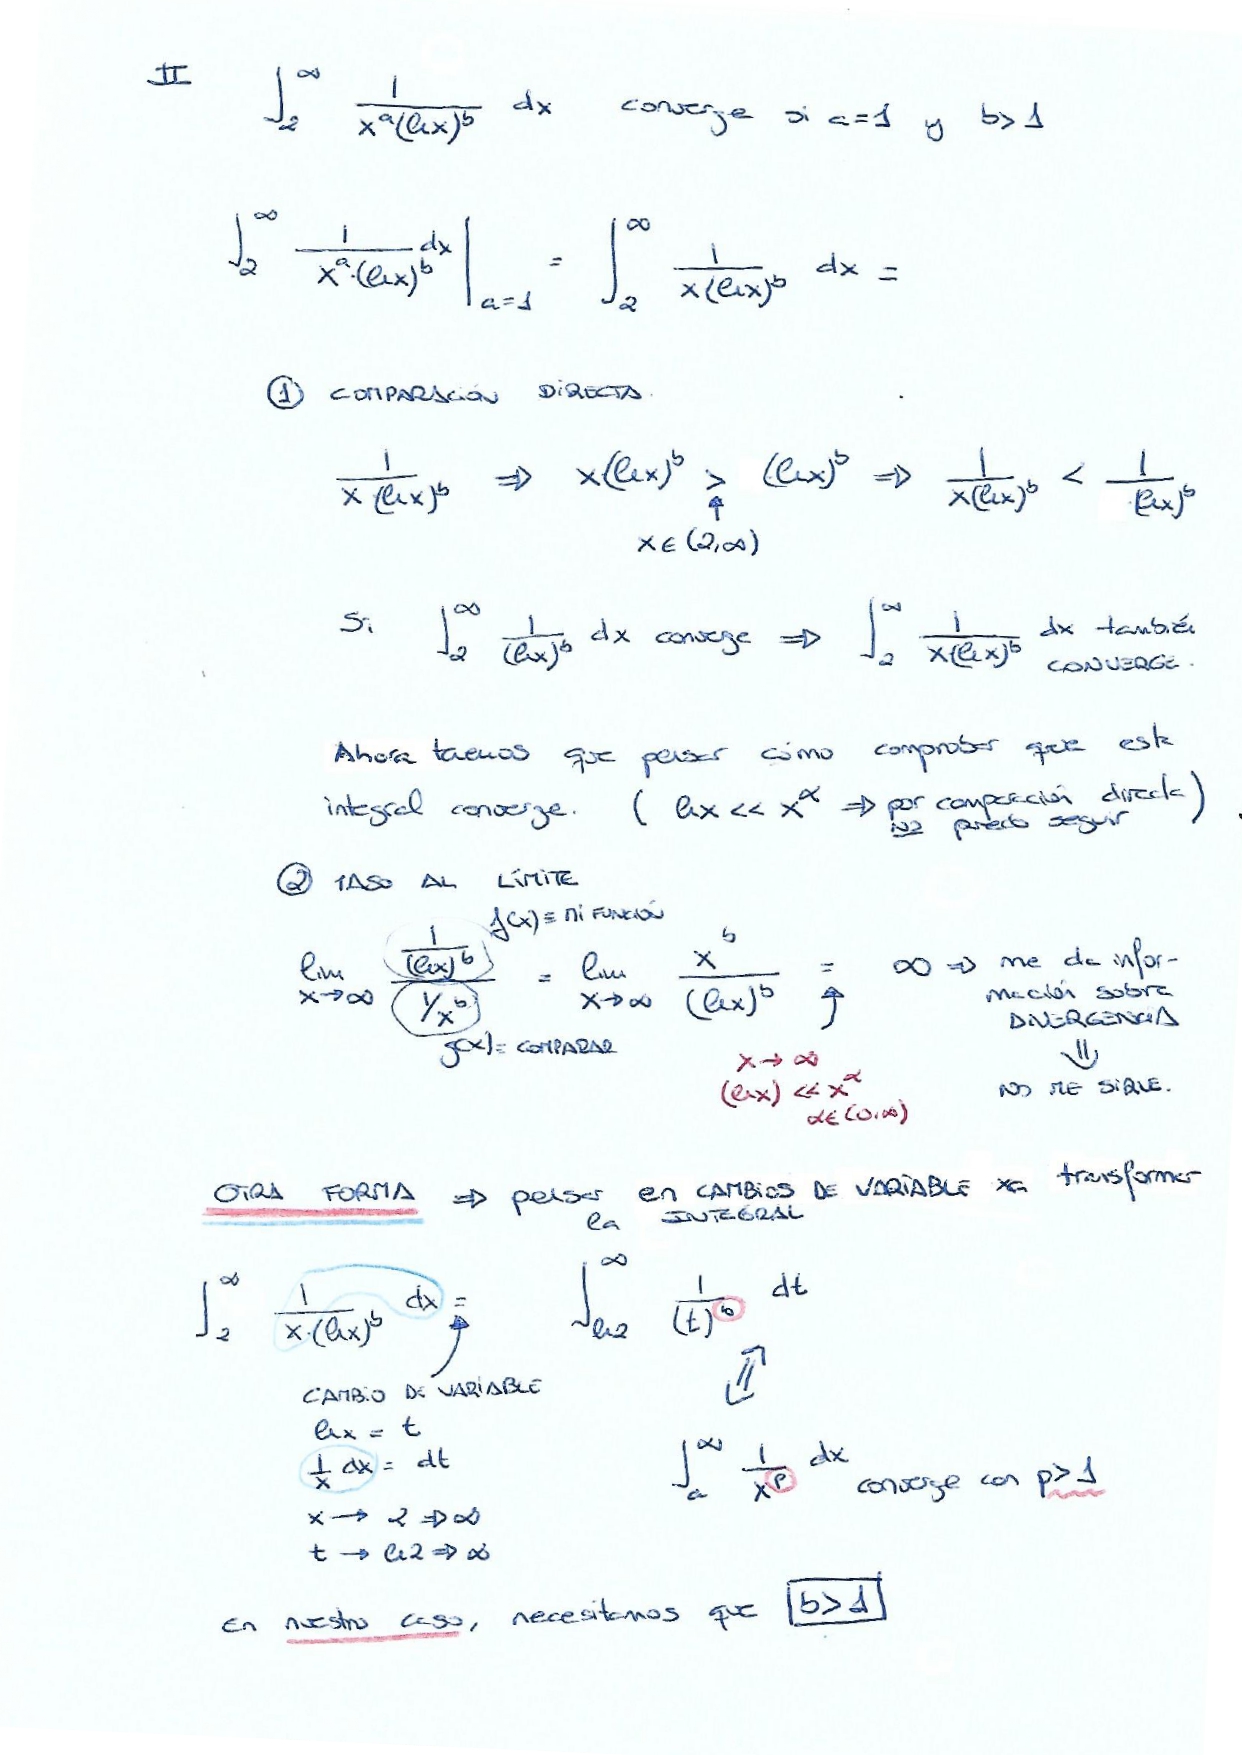 II ∫₂^∞ 1/(xᵃ(lnx)ᵇ) dx converge si a=1 y b>1
∫₂^∞ 1/(xᵃ·(lnx)ᵇ) dx |ₐ₌₁ = ∫₂^∞ 1/(x(lnx)ᵇ) dx =
① COMPARACIÓN DIRECTA.
1/(x·(lnx)ᵇ) ⇒ x(lnx)ᵇ > (lnx)ᵇ ⇒ 1/(x(lnx)ᵇ) < 1/(lnx)ᵇ
↑
x∈(2,∞)
Si ∫₂^∞ 1/(lnx)ᵇ dx converge ⇒ ∫₂^∞ 1/(x(lnx)ᵇ) dx también
CONVERGE.
Ahora tenemos que pensar cómo comprobar que esta
integral converge. ( lnx << x^α ⇒ por comparación directa)
NO puedo seguir
② PASO AL LÍMITE
f(x) ≡ MI FUNCIÓN
lim x→∞ (1/(lnx)ᵇ)/(1/xᵇ) = lim x→∞ xᵇ/(lnx)ᵇ = ∞ ⇒ me da infor-
mación sobre
DIVERGENCIA
g(x) = COMPARAR
⇓
x→∞
(lnx) << x^α
α∈(0,∞)
NO ME SIRVE.
OTRA FORMA ⇒ pensar en CAMBIOS DE VARIABLE xa transformar
la INTEGRAL
∫₂^∞ 1/(x·(lnx)ᵇ) dx = ∫_ln2^∞ 1/(t)ᵇ dt
CAMBIO DE VARIABLE
lnx = t
1/x dx = dt
x → 2 ⇒ ∞
t → ln2 ⇒ ∞
∫ₐ^∞ 1/xᵖ dx converge con p>1
En nuestro caso, necesitamos que b>1